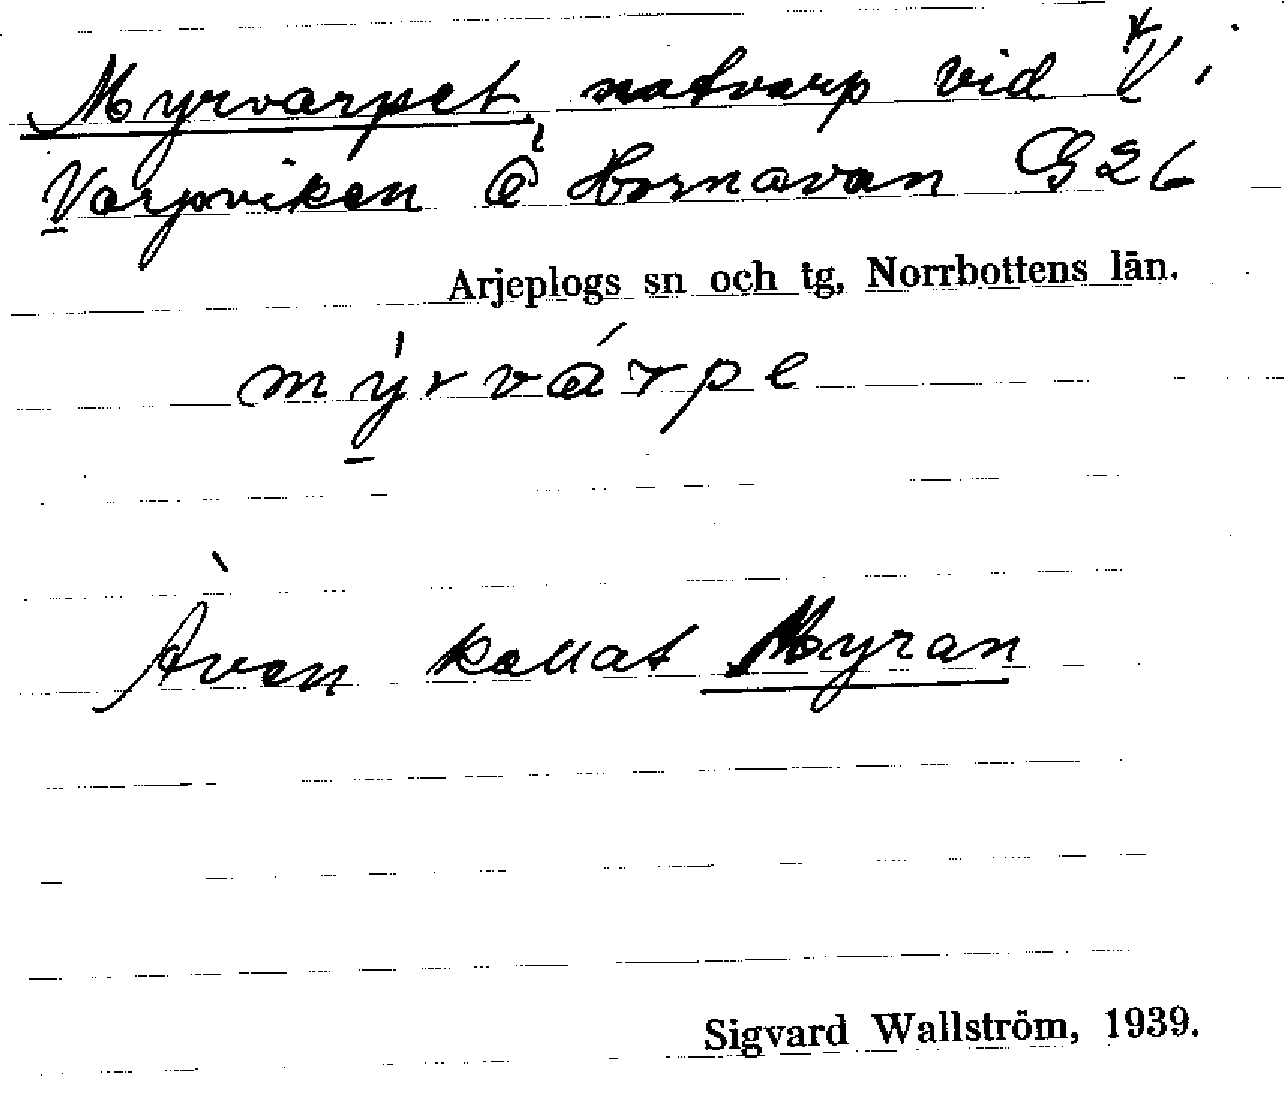 Myrvarpet, notvarp vid V i
Varpviken å Hornavan G 26
Arjeplogs sn och tg, Norrbottens län.
mýrvárpe
Även kallat Myran
Sigvard Wallström, 1939.